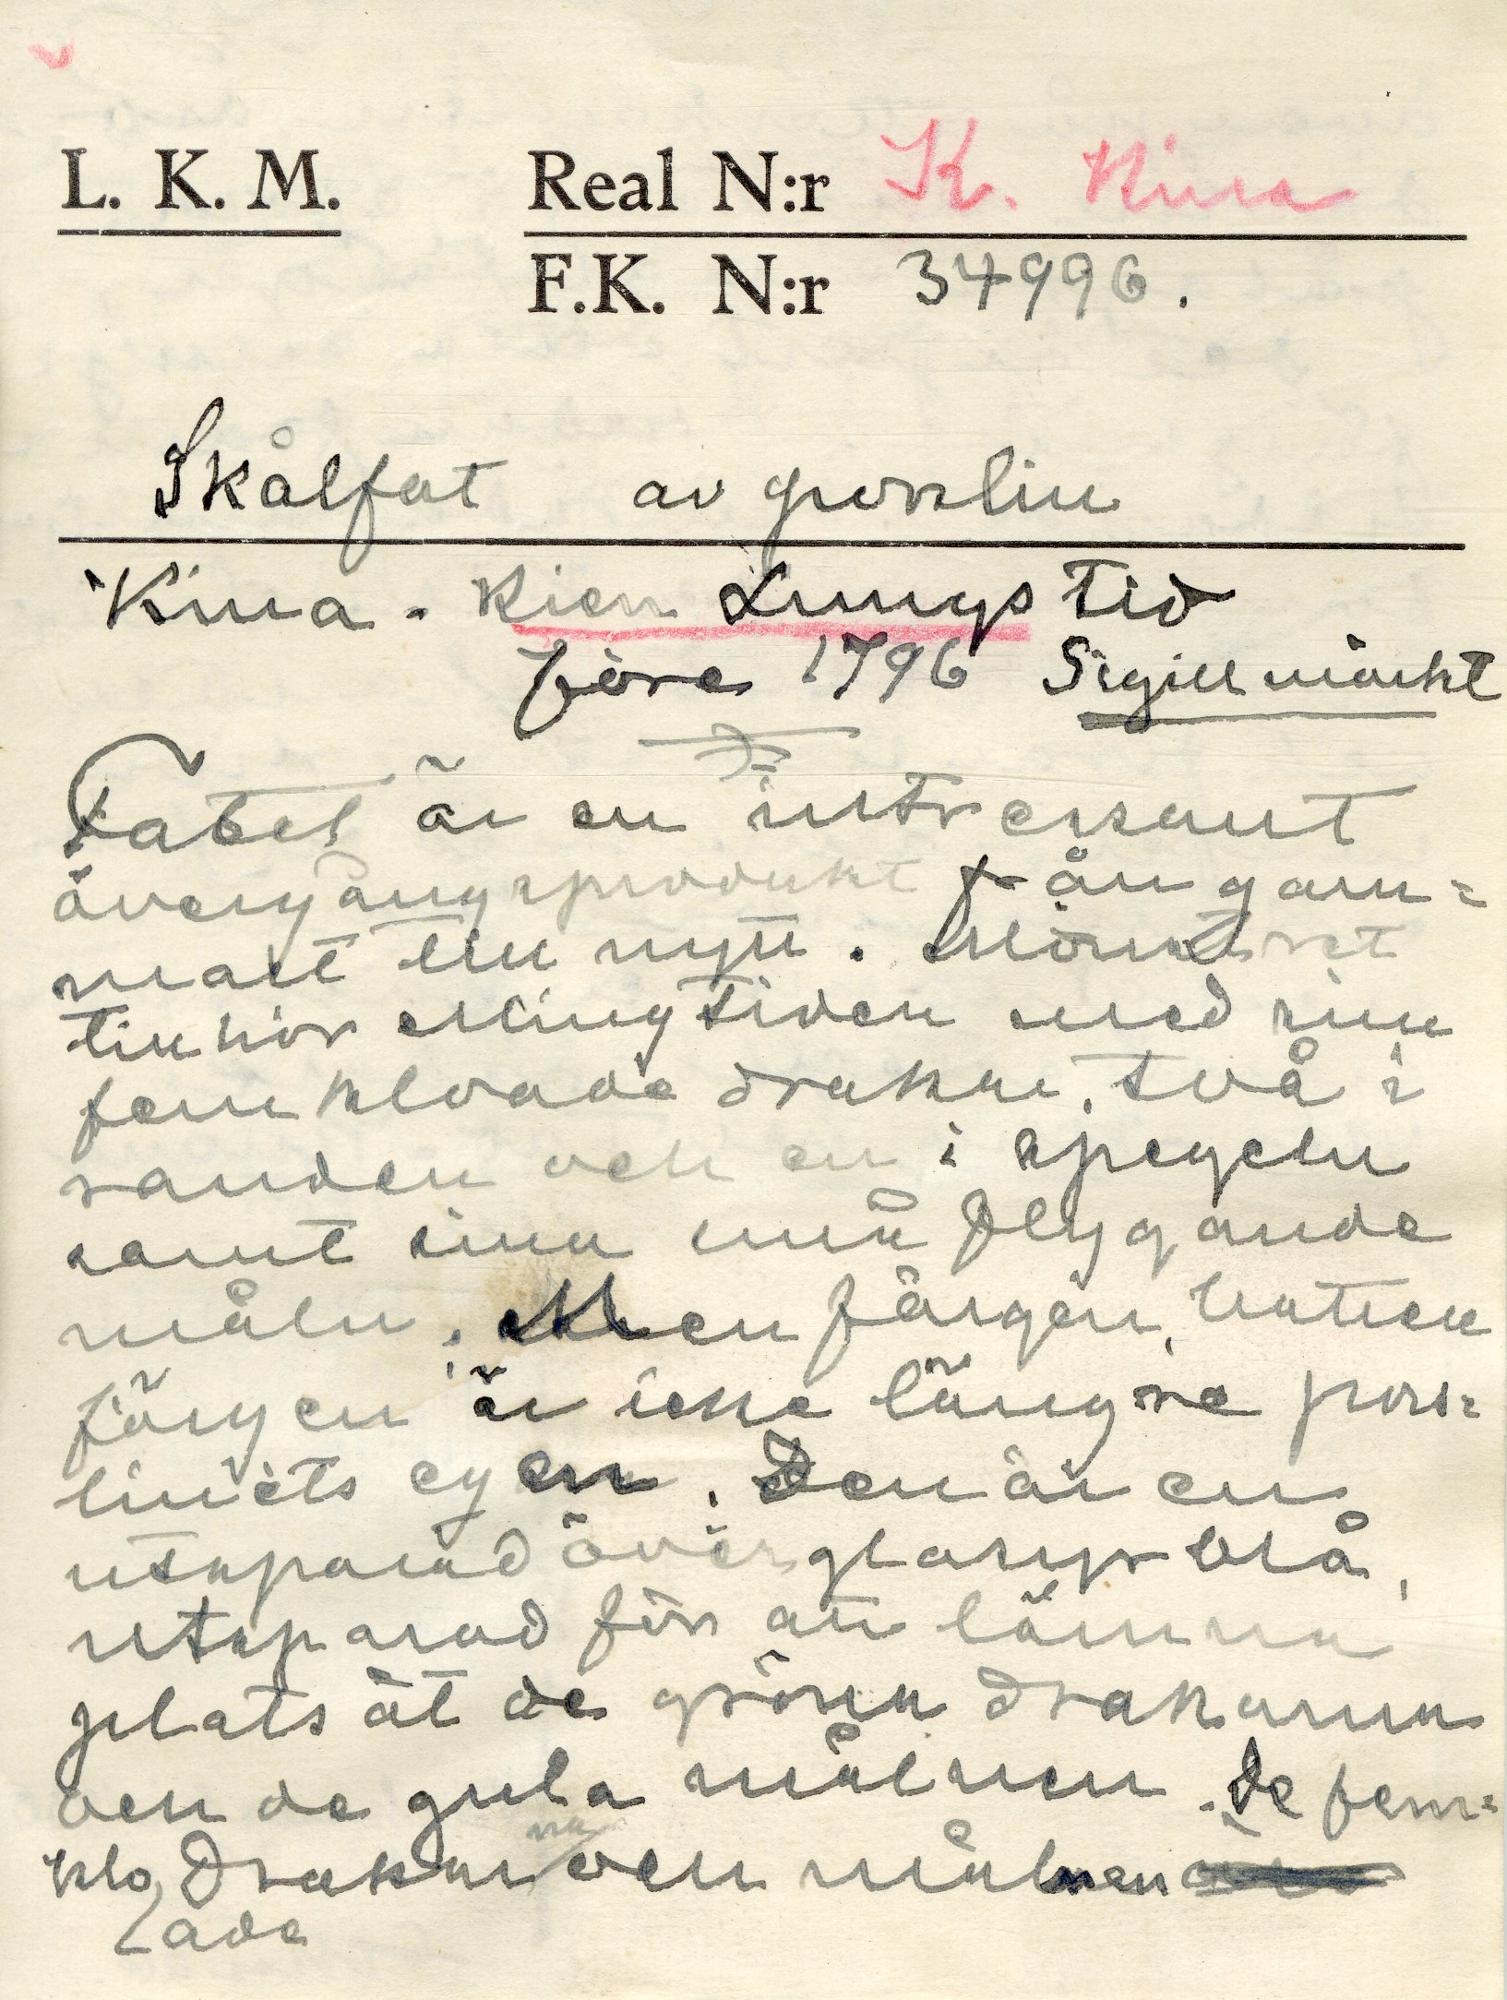 L. K. M. Real N:r K. Kina
F.K. N:r 34996.
Skålfat av porslin
Kina. Kien Lungs tid
före 1796 Sigillmärkt
Fatet är en intressant
övergångsprodukt från gam=
malt till nytt. Mönstret
tillhör Mingtiden med sina
femkloade drakar, två i
randen och en i spegeln
samt sina små flygande
moln. Men färgen, botten
färgen är icke längre pors=
linets egen. Den är en
utsparad överglasyrblå,
utsparad för att lämna
plats åt de gröna drakarna
och de gula molnen. De fem=
klo drakarna och molnen
ade